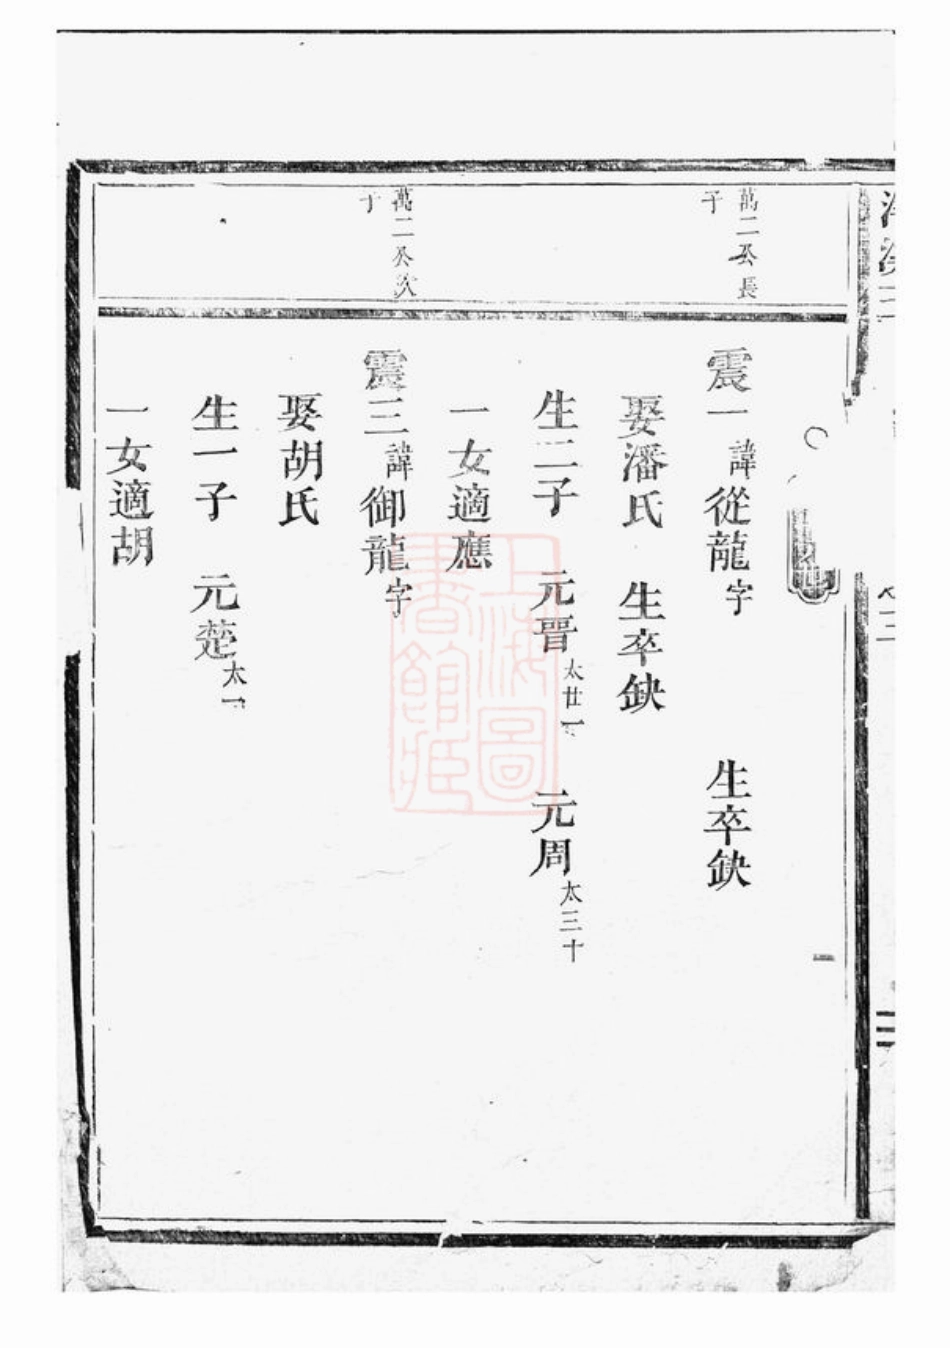 萬二公長
子
震一諱從龍字 生卒缺
娶潘氏 生卒缺
生二子 元晋太廿一 元周太三十
一女適應
萬二公次
子
震三諱御龍字
娶胡氏
生一子 元楚太一
一女適胡
上海圖
書館藏